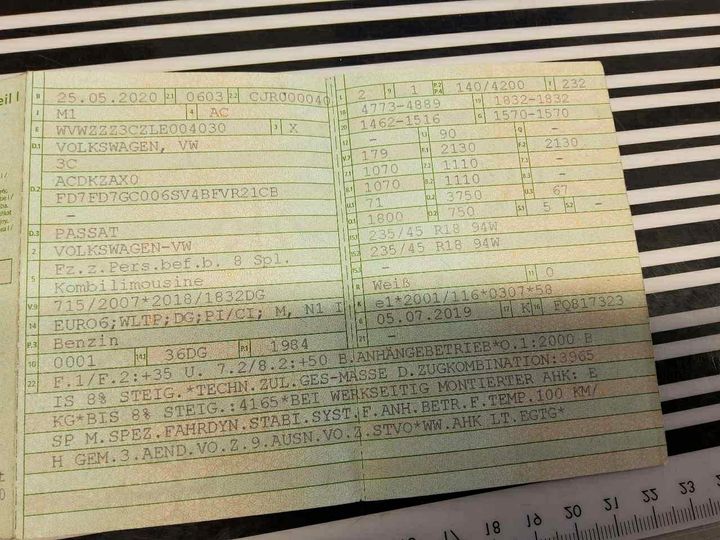 eil I
B 25.05.2020 2.1 0603 2.2 CJR000040
J M1 4 AC
E WVWZZZ3CZLE004030 3 X
D.1 VOLKSWAGEN, VW
3C
D.2 ACDKZAX0
FD7FD7GC006SV4BFVR21CB
–
D.3 PASSAT
2 VOLKSWAGEN-VW
5 Fz.z.Pers.bef.b. 8 Spl.
Kombilimousine
V.9 715/2007*2018/1832DG
14 EURO6;WLTP;DG;PI/CI; M, N1 I
P.3 Benzin
10 0001 14.1 36DG P.1 1984
L 2 9 1 P.2 P.4 140/4200 T 232
18 4773-4889 19 1832-1832
20 1462-1516 G 1570-1570
12 – 13 90 Q –
V.7 179 F.1 2130 F.2 2130
7.1 1070 7.2 1110 7.3 –
8.1 1070 8.2 1110 8.3 –
U.1 71 U.2 3750 U.3 67
O.1 1800 O.2 750 S.1 5 S.2 –
15.1 235/45 R18 94W
15.2 235/45 R18 94W
15.3 –
R Weiß 11 0
K e1*2001/116*0307*58
6 05.07.2019 17 K 16 FQ817323
21
22 F.1/F.2:+35 U. 7.2/8.2:+50 B.ANHÄNGEBETRIEB*O.1:2000 B
IS 8% STEIG.*TECHN.ZUL.GES-MASSE D.ZUGKOMBINATION:3965
KG*BIS 8% STEIG.:4165*BEI WERKSEITIG MONTIERTER AHK: E
SP M.SPEZ.FAHRDYN.STABI.SYST.F.ANH.BETR.F.TEMP.100 KM/
H GEM.3.AEND.VO.Z.9.AUSN.VO.Z.STVO*WW.AHK LT.EGTG*
16 17 18 19 20 21 22 23 24